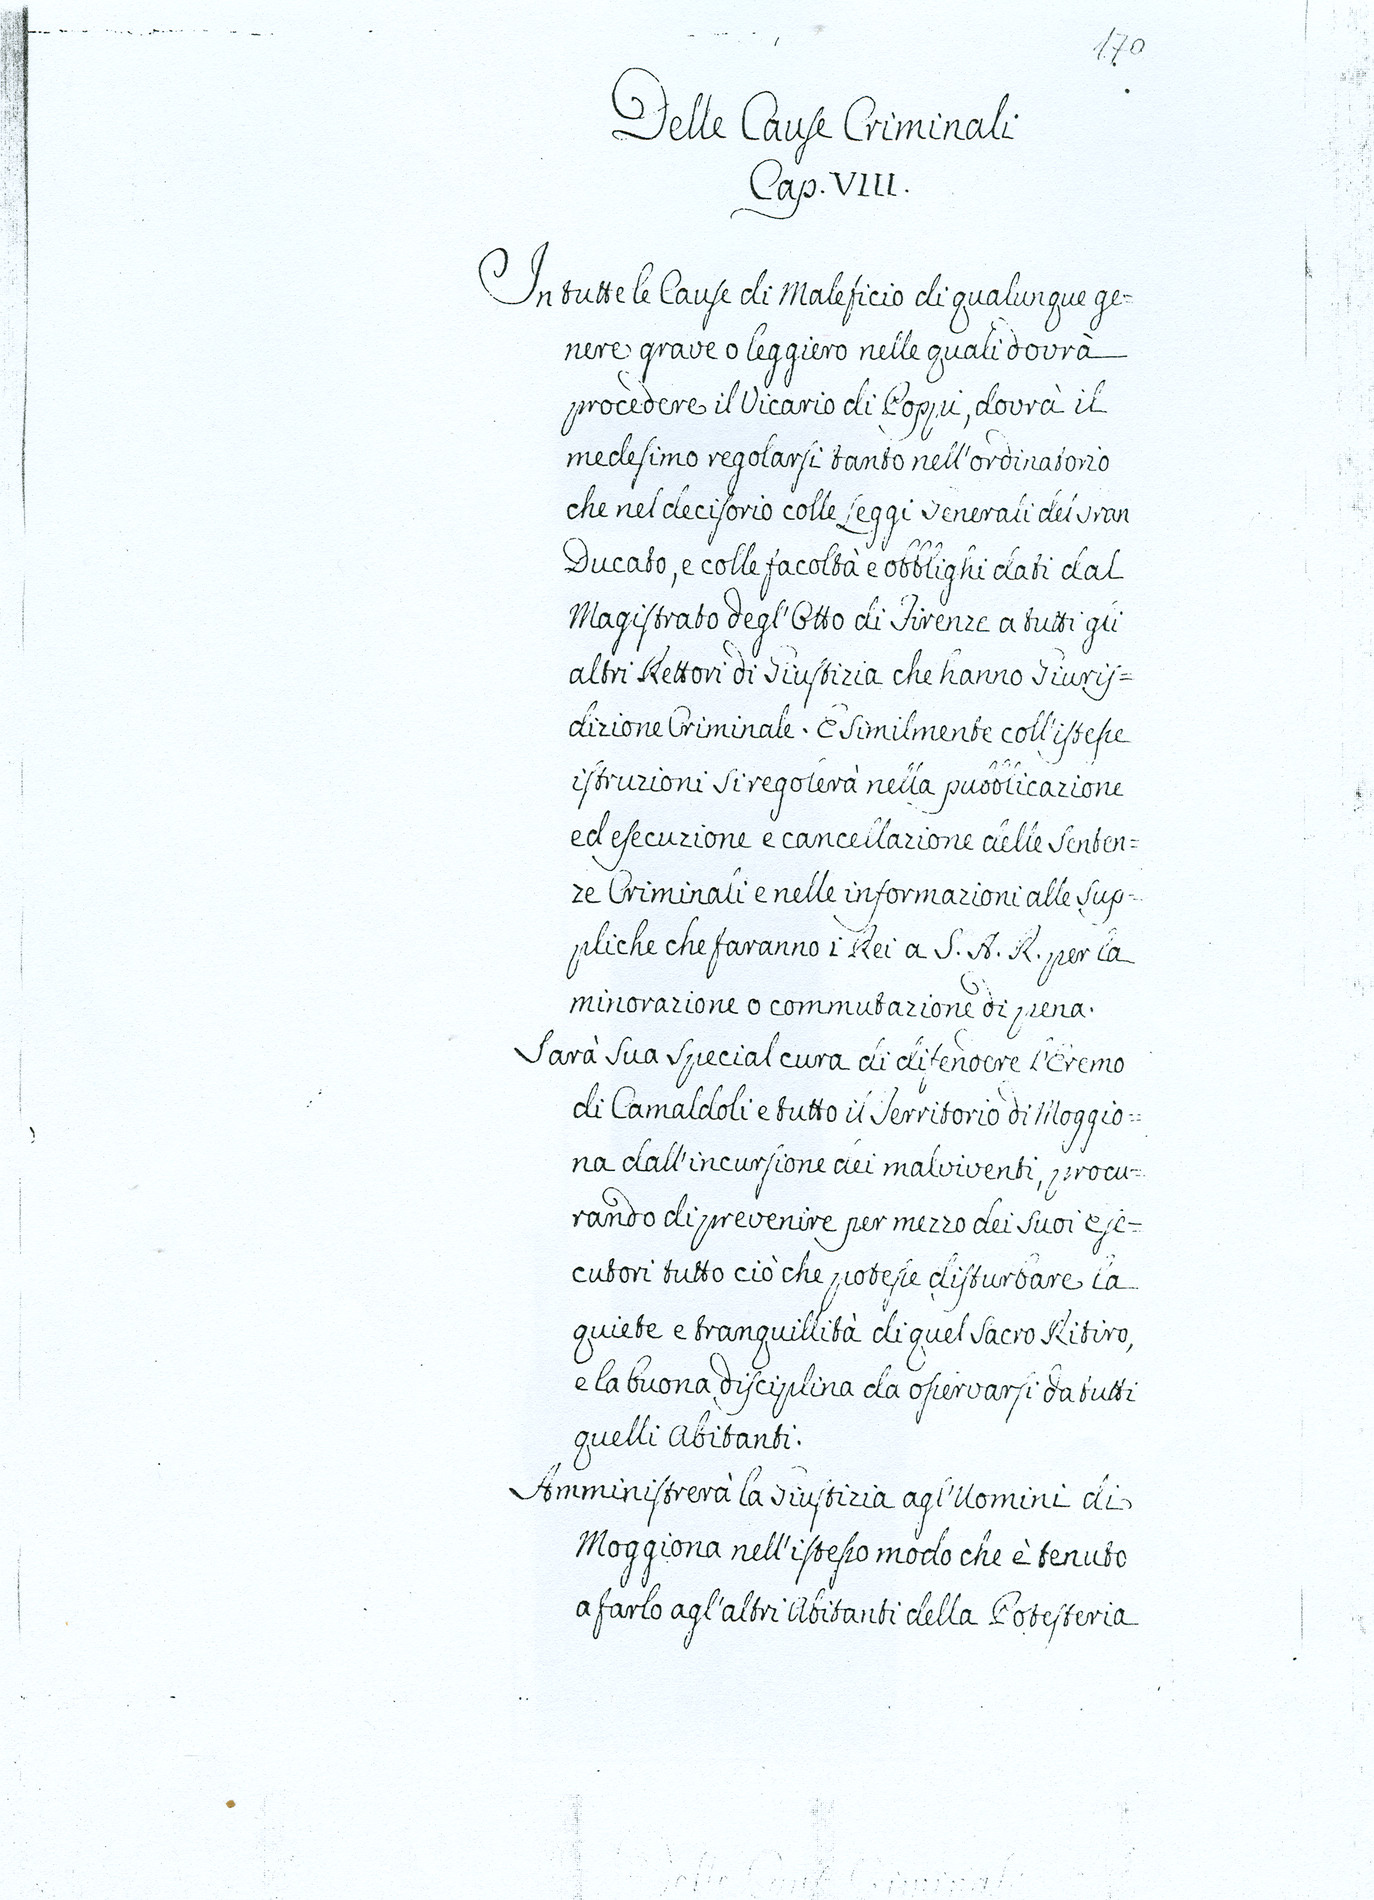 170
Delle Cause Criminali
Cap. VIII.
In tutte le Cause di Maleficio di qualunque ge=
nere grave o leggiero nelle quali dovrà
procedere il Vicario di Poppi, dovrà il
medesimo regolarsi tanto nell'ordinatorio
che nel decisorio colle Leggi Generali del Gran
Ducato, e colle facoltà e obblighi dati dal
Magistrato degl'Otto di Firenze a tutti gli
altri Rettori di Giustizia che hanno Giuris=
dizione Criminale. E Similmente coll'istesse
istruzioni si regolerà nella pubblicazione
ed esecuzione e cancellazione delle Senten=
ze Criminali e nelle informazioni alle Sup=
pliche che faranno i Rei a S. A. R. per la
minorazione o commutazione di pena.
Sarà Sua Special cura di difendere l'Eremo
di Camaldoli e tutto il Territorio di Moggio=
na dall'incursione dei malviventi, procu=
rando di prevenire per mezzo dei Suoi Ese=
cutori tutto ciò che potesse disturbare la
quiete e tranquillità di quel Sacro Ritiro,
e la buona disciplina da osservarsi da tutti
quelli Abitanti.
Amministrerà la Giustizia agl'Uomini di
Moggiona nell'istesso modo che è tenuto
a farlo agl'altri Abitanti della Potesteria
Delle Cause Criminali